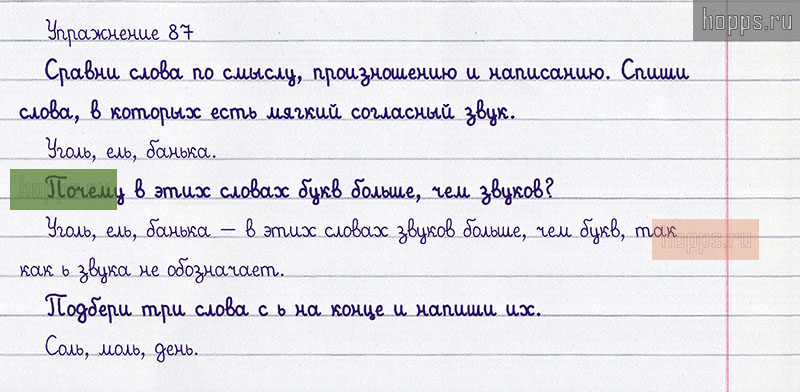 hopps.ru
Упражнение 87
Сравни слова по смыслу, произношению и написанию. Спиши
слова, в которых есть мягкий согласный звук.
Уголь, ель, банька.
Почему в этих словах букв больше, чем звуков?
Уголь, ель, банька – в этих словах звуков больше, чем букв, так
hopps.ru
как ь звука не обозначает.
Подбери три слова с ь на конце и напиши их.
Соль, моль, день.